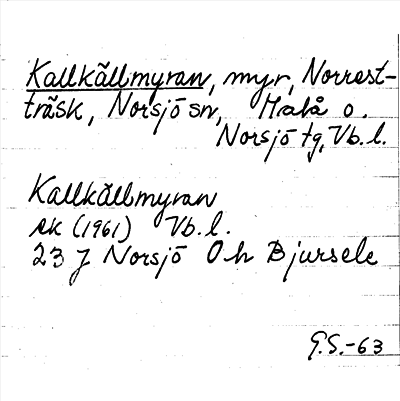 Kallkällmyran, myr, Norrest-
träsk, Norsjö sn, Malå o.
Norsjö tg, Vb. l.
Kallkällmyran
ek (1961) Vb. l.
23 J Norsjö Öh Bjursele
G.S.-63